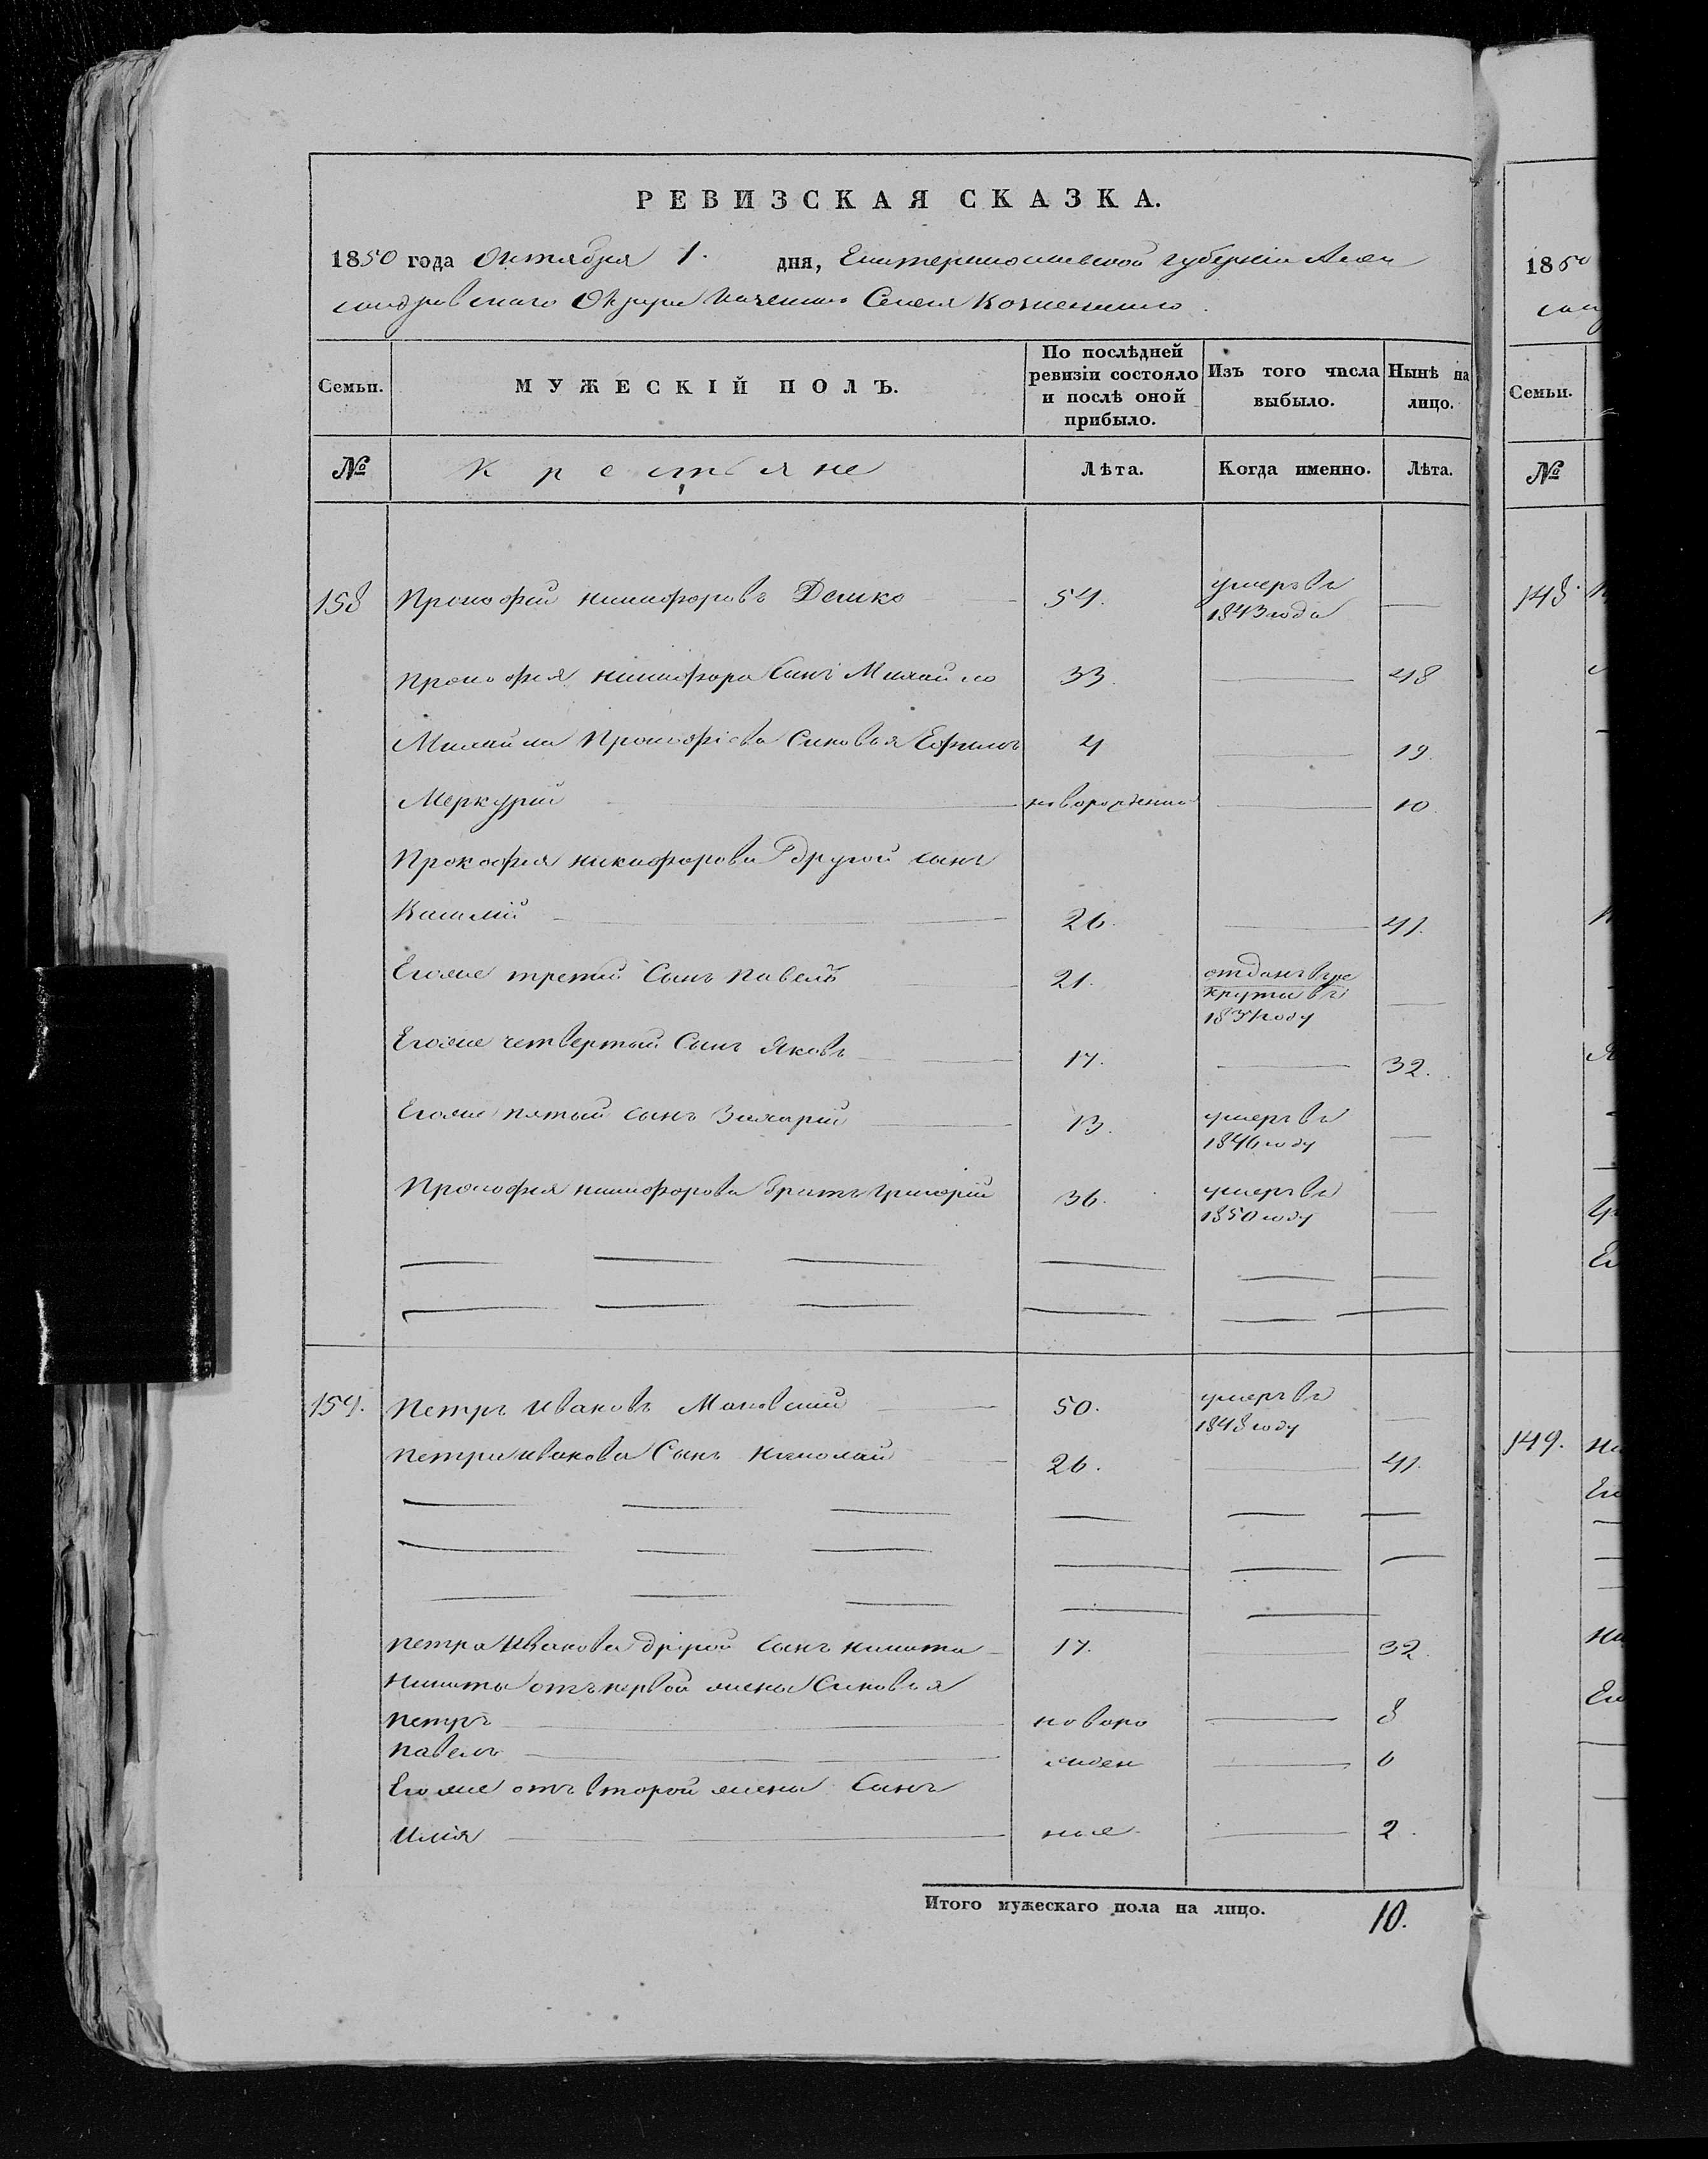 РЕВИЗСКАЯ СКАЗКА.
1850 года Октября 1. дня, Екатеринославской губерніи Алек
сандровскаго Округа Казеннаго Села
Семьи. МУЖЕСКІЙ ПОЛЪ. По послѣдней ревизіи состояло и послѣ оной прибыло. Изъ того числа выбыло. Нынѣ на лицо.
№ Крестьяне Лѣта. Когда именно. Лѣта.
158 Прокофій Никифоровъ Дешко 54. умеръ въ 1843 года
Прокофія Никифора Сынъ Михайло 33. 48
Михайла Прокофіева Сыновья Ефимъ 4 19.
Меркурій новорожденный 10.
Прокофія Никифорова другой сынъ
Василій 26. 41.
Егоже третій Сынъ Павелъ 21. отданъ въ рекруты въ году
Егоже четвертый Сынъ Яковъ 17. 32.
Егоже пятый сынъ Захарій 13. умеръ въ 1846 году
Прокофія Никифорова братъ Григорій 36. умеръ въ 1850 году
159. Петръ Ивановъ 50. умеръ въ 1848 году
Петра Иванова Сынъ Николай 26. 41.
Петра Иванова другой сынъ Никита 17. 32.
Никиты отъ первой жены Сыновья
Петръ новоро 8
Павелъ жден 6
Егоже отъ второй жены Сынъ
Илія ные 2.
Итого мужескаго пола на лицо. 10.
1850
Семьи.
№
148.
149.